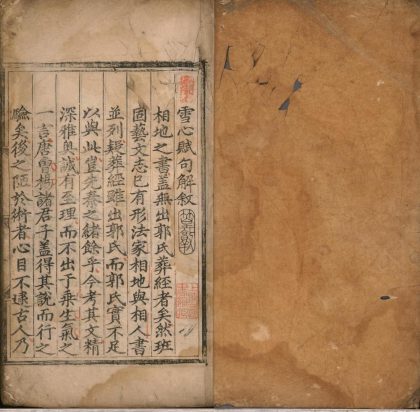 雪心賦句解叙
相地之書蓋無出郭氏葬經者矣然班
固藝文志已有形法家相地與相人書
並列疑葬經雖出郭氏而郭氏實不足
以與此豈先秦之緒餘乎今考其文精
深雅奥誠有至理而不出于乗生氣之
一言唐曾楊諸君子蓋得其說而行之
驗矣後之陋於術者心目不逮古人乃